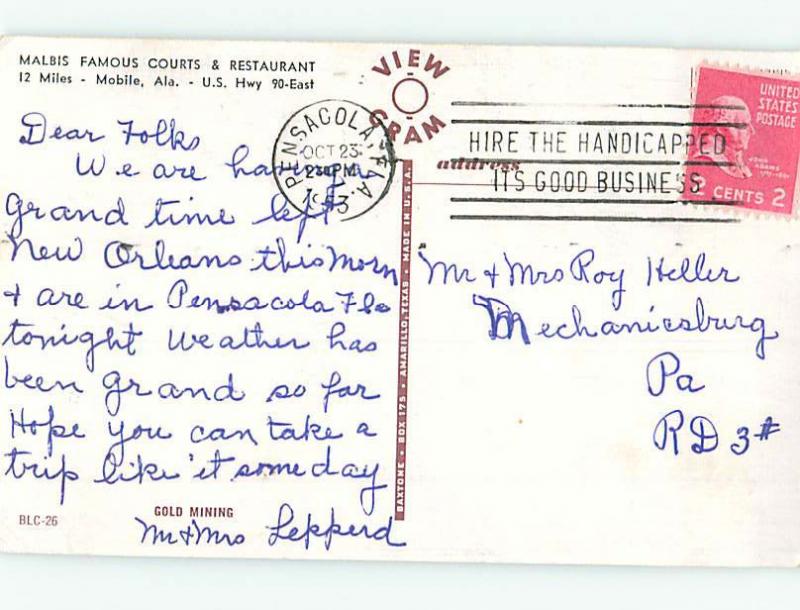 MALBIS FAMOUS COURTS & RESTAURANT
12 Miles - Mobile, Ala. - U.S. Hwy 90-East
VIEW
GRAM
PENSACOLA, FLA.
OCT 23
2 30 PM
1953
HIRE THE HANDICAPPED
ITS GOOD BUSINESS
UNITED
STATES
POSTAGE
JOHN
ADAMS
2 CENTS 2
address
Dear Folks
We are having a
grand time left
New Orleans this Morn
& are in Pensacola Fla
tonight Weather has
been grand so far
Hope you can take a
trip like it some day
Mr & Mrs Lepperd
Mr & Mrs Roy Heller
Mechanicsburg
Pa
RD 3#
BAXTONE • BOX 175 • AMARILLO, TEXAS • MADE IN U.S.A.
GOLD MINING
BLC-26